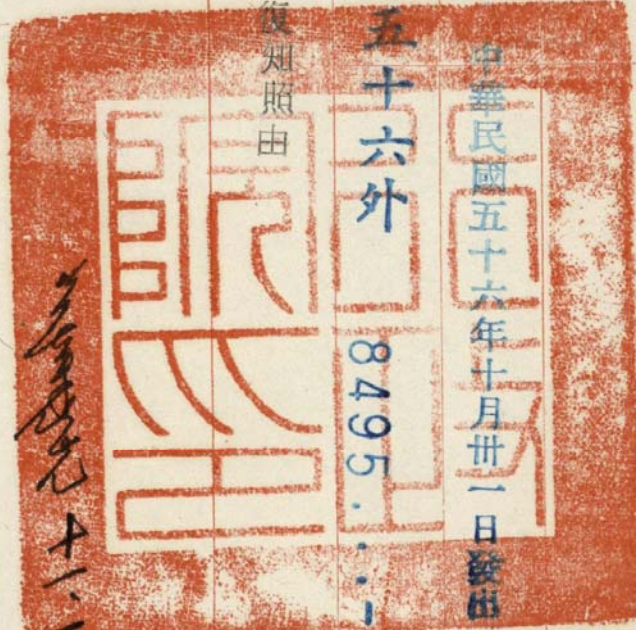 中華民國五十六年十月卅一日發出
五十六外 8495...1
復知照由
行政院印